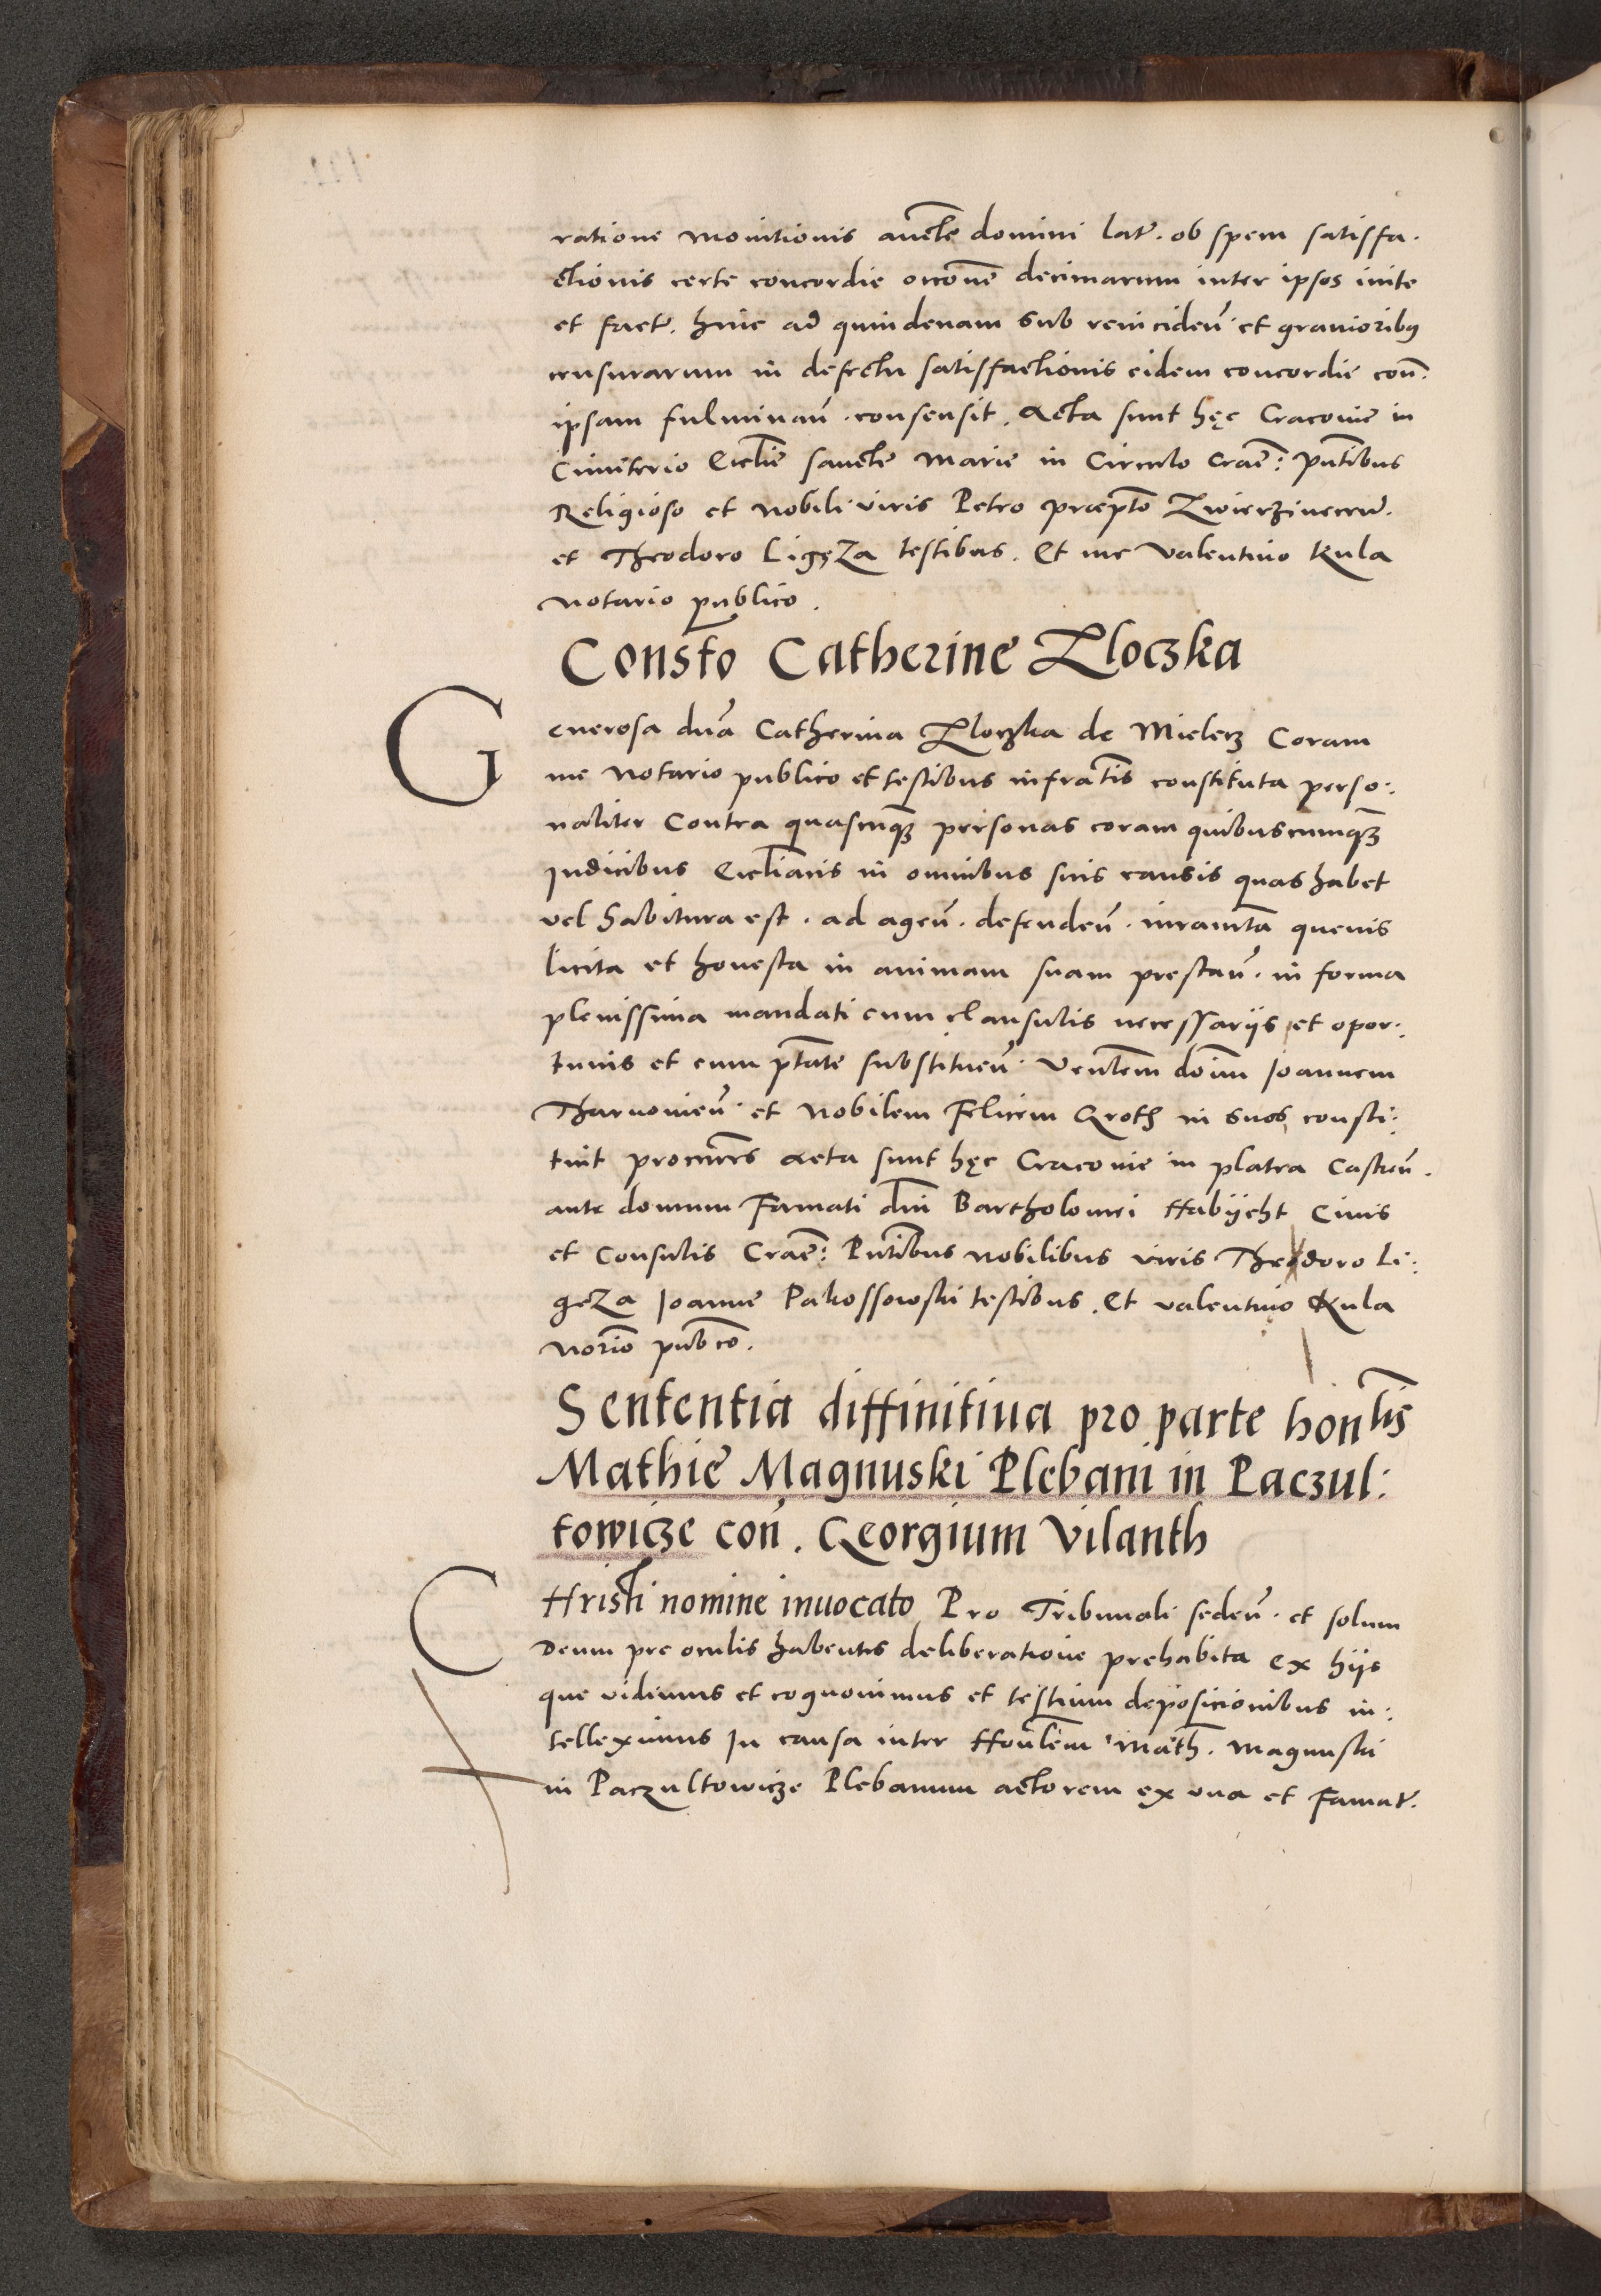 ratione monitionis aucte domini lat. ob spem satisfa.
ctionis certe concordie occone decimarum inter ipsos inite
et fact. hinc ad quindenam sub reincideñ. et grauioribus
censurarum in defectu satisfactionis eidem concordie coñ.
ipsam fulminañ. consensit. Acta sunt hęc Cracovie in
Cimiterio Ecclie sancte Marie in Circulo Crac̄: pn̄tibus
Religioso et nobili viris Petro præpto Zwierzinecen̄.
et Theodoro Ligęza testibus. Et me Valentino Kula
Notario publico.
Consto Catherine Zloczka
Generosa dn̄a Catherina Zloczka de Mielecz Coram
me Notario publico et testibus infratis constituta perso:
naliter Contra quascunqꝫ personas coram quibuscumqꝫ
Iudicibus Eccliacis in omnibus suis causis quas habet
vel habitura est. ad ageñ. defendeñ. iuramta queuis
licita et honesta in animam suam prestañ. in forma
plenissima mandati cum clausulis necessarijs et opor:
tunis et cum ptate substitueñ. Venlem doim Ioannem
Tharnovieñ. et Nobilem Felicem Groth in suos consti:
tuit procurrs Acta sunt hęc Cracovie in platea Castreñ.
ante domum Famati dni Bartholomei Habijcht Ciuis
et Consulis Crac̄: Pn̄tibus nobilibus viris Theodoro Li:
gęza Ioanne Pakossowski testibus. Et valentino Kula
Norio pubco.
Sententia diffinitiua pro parte honlis
Mathie Magnuski Plebani in Paczul:
towicze coñ. Georgium Vilanth
CHristi nomine inuocato Pro Tribunali sedeñ. et solum
Deum pre oculis habentes deliberatione prehabita ex hijs
que vidimus et cognouimus et testium deposicionibus in:
telleximus In causa inter Honlem Math. Magnuski
in Paczultowicze Plebanum actorem ex vna et Famat.